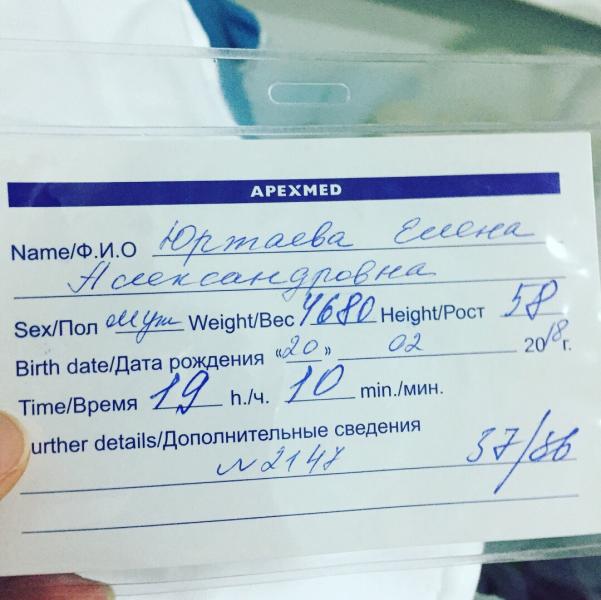 APEXMED
Name/Ф.И.О Юртаева Елена
Александровна
Sex/Пол муж Weight/Вес 4680 Height/Рост 58
Birth date/Дата рождения «20» 02 2018г.
Time/Время 19 h./ч. 10 min./мин.
urther details/Дополнительные сведения
N2147 37/8б